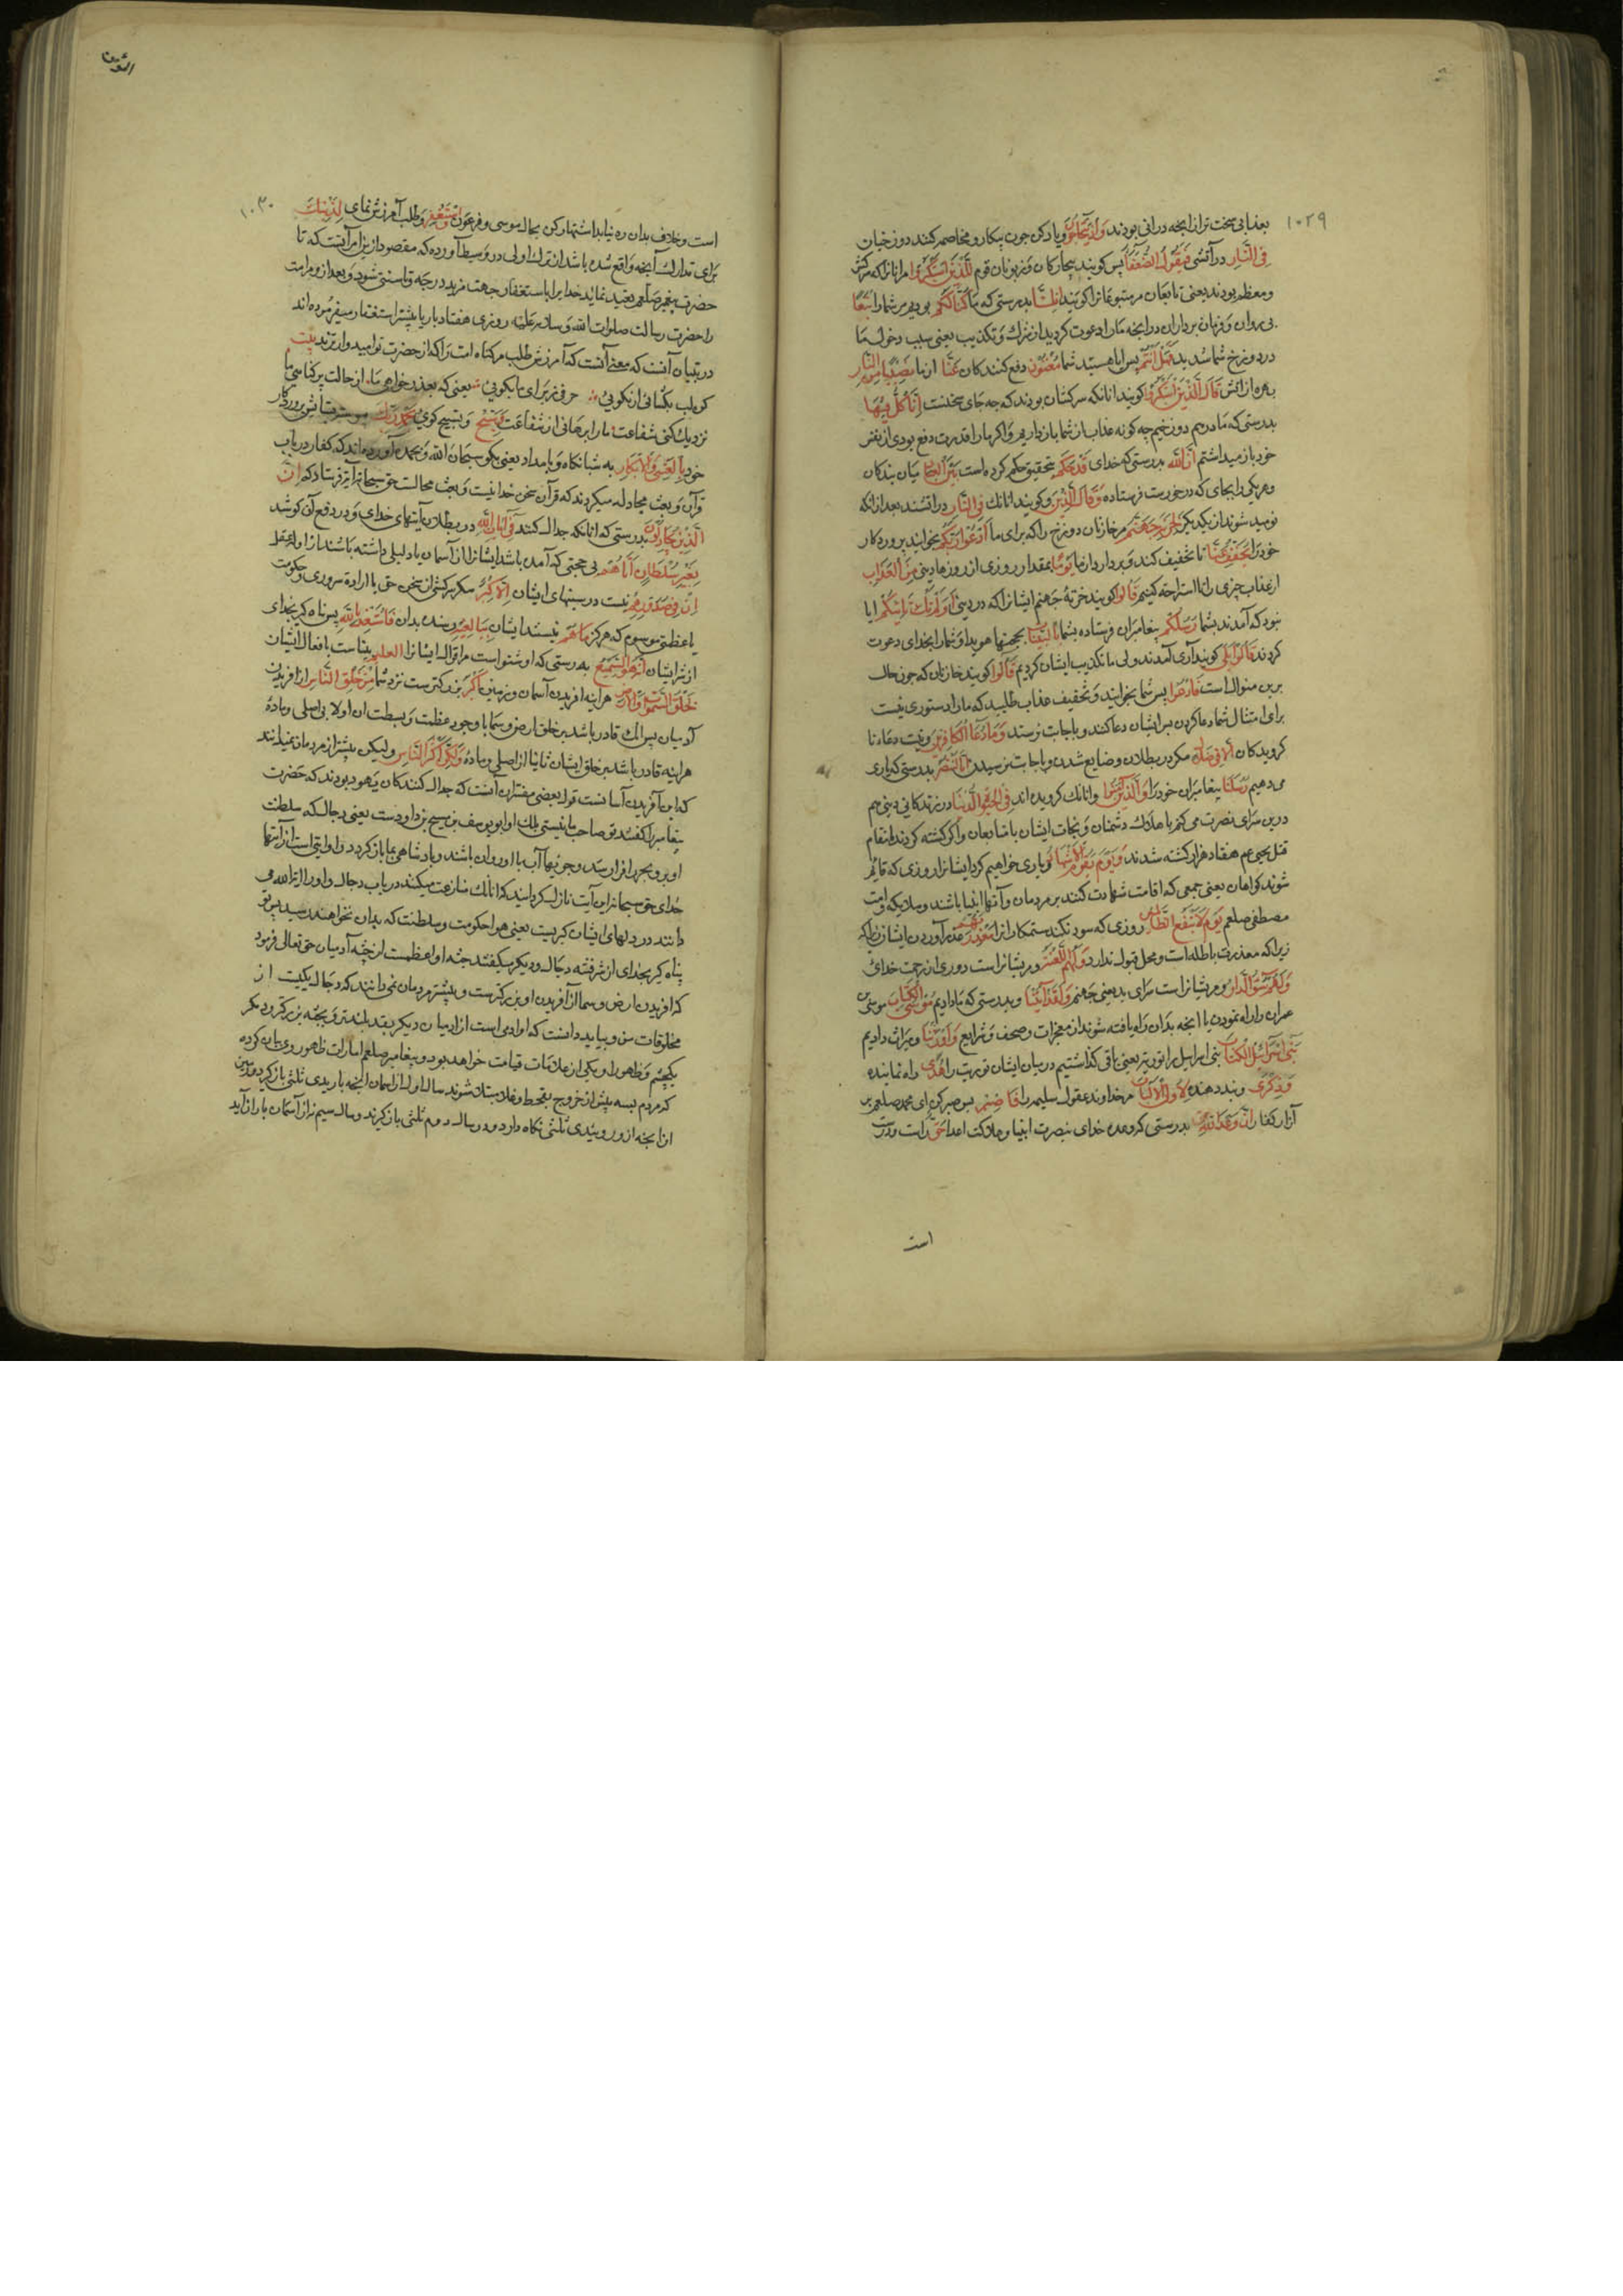 ١٠٢٩
بعذابی سخت تر از انچه در انی بودند وَاِذْ یَتَحَاجُّونَ و یاد کن چون پیکار و مخاصمه کنند دوزخیان
فِی النَّارِ در آتش فَیَقُولُ الضُّعَفَآءُ پس کویند بیچارکان و زبونان قوم لِلَّذِینَ اسْتَکْبَرُوا مر انانرا که سرکش
و معظم بودند یعنی تابعان مر متبوعانرا کویند اِنَّا کُنَّا بدرستی که ما لَکُمْ بودیم مر شما را تَبَعًا
پی روان و فرمان برداران در انچه ما را دعوت کردید از شرك و تکذیب یعنی سبب دخول ما
در دوزخ شما شدید فَهَلْ اَنْتُمْ پس ایا هستید شما مُغْنُونَ دفع کنندکان عَنَّا از ما نَصِیبًا مِنَ النَّارِ
بهره از اتش قَالَ الَّذِینَ اسْتَکْبَرُوا کویند انانکه سرکشان بودند که چه جای سخنست اِنَّا کُلٌّ فِیهَا
بدرستی که ما در هم دوزخیم چه کونه عذاب از شما باز داریم و اکر ما را قدرت دفع بودی از نفس
خود باز میداشتم اِنَّ اللّٰهَ بدرستی که خدای قَدْ حَکَمَ بتحقیق حکم کرده است بَیْنَ الْعِبَادِ میان بندکان
و هر یکی را بجای که در خورست فرستاده وَقَالَ الَّذِینَ و کویند انانك فِی النَّارِ در اتشند بعد از انکه
نومید شوند از یکدیکر لِخَزَنَةِ جَهَنَّمَ مر خازنان دوزخ را که برای ما ادْعُوا رَبَّکُمْ بخوانید پروردکار
خود را یُخَفِّفْ عَنَّا تا تخفیف کند و بردارد از ما یَوْمًا بمقدار روزی از روزها دنیی مِنَ الْعَذَابِ
از عذاب چیزی را تا استراحه کنیم قَالُوا کویند خزنهٔ جهنم ایشانرا که در دنیی اَوَلَمْ تَكُ تَأْتِیکُمْ ایا
نبود که آمدند بشما رُسُلُکُمْ پیغامبران فرستاده بشما بِالْبَیِّنَاتِ بحجتها هویدا و شما را بخدای دعوت
کردند قَالُوا بَلٰی کویند آری آمدند ولی ما تکذیب ایشان کردیم قَالُوا کویند خازنان که چون حال
برین منوال است فَادْعُوا پس شما بخوانید و تخفیف عذاب طلبید که ما را دستوری نیست
برای امتثال شما دعا کردن پس ایشان دعا کنند و باجابت نرسند وَمَا دُعَاءُ الْکَافِرِینَ و نیست دعاء نا
کرویدکان اِلَّا فِی ضَلَالٍ مکر در بطلان و ضایع شدن و باجابت نرسیدن اِنَّا لَنَنْصُرُ بدرستی که یاری
می دهیم رُسُلَنَا پیغامبران خود را وَالَّذِینَ اٰمَنُوا و انانك کرویده اند فِی الْحَیٰوةِ الدُّنْیَا در زندکانی دنیی هم
درین سرای نصرت می کنم باهلاك دشمنان و نجات ایشان با متابعان و اکر کشته کردند بانتقام
قتل یحیی عم هفتاد هزار کشته شدند وَیَوْمَ یَقُومُ الْاَشْهَادُ و یاری خواهیم کرد ایشانرا روزی که قایم
شوند کواهان یعنی جمعی که اقامت شهادت کنند بر مردمان و آنها انبیا باشند و ملایکه و امت
مصطفی صلعم یَوْمَ لَا یَنْفَعُ الظَّالِمِینَ روزی که سود نکند ستمکارانرا مَعْذِرَتُهُمْ عذر آوردن ایشان
زیرا که معذرت باطله است و محل قبول ندارد وَلَهُمُ اللَّعْنَةُ و مر یشانراست دوری از رحمت خدای
وَلَهُمْ سُوٓءُ الدَّارِ و مر یشانراست سرای بد یعنی جهنم وَلَقَدْ اٰتَیْنَا و بدرستی که ما دادیم مُوسَی الْکِتَابَ موسی
عمران را راه نمودن یا انچه بدان راه یافته شوند از معجزات و صحف و شرایع وَاَوْرَثْنَا و میراث دادیم
بَنِی اِسْرَائِیلَ الْکِتَابَ بنی اسرایل را توریة یعنی باقی کذاشتیم در میان ایشان توریت را هُدًی راه نماینده
وَذِکْرٰی و پند دهنده لِاُولِی الْاَلْبَابِ مر خداوند عقول سلیمه را فَاصْبِرْ پس صبر کن ای محمد صلعم بر
آزار کفار اِنَّ وَعْدَ اللّٰهِ بدرستی که وعده خدای بنصرت انبیا و هلاکت اعدا حَقٌّ راست و درست
است
١٠٣٠
است و خلاف بدان ره نیابد استشهار کن بحال موسی و فرعون وَاسْتَغْفِرْ و طلب آمرزش نمای لِذَنْبِكَ
برای تدارك آنچه واقع شده باشد از ترك اولی در وسیط آورده که مقصود ازین امر آنست که تا
حضرت پیغمبر صلعم تعبد نماید خدا برا باستغفار جهت مزید درجه و تا سنتی شود و بعد از و مر امت
را حضرت رسالت صلوات الله و سلامه علیه روزی هفتاد بار یا پیشتر استغفار میفرموده اند
در تبیان آنست که معنی آنست که آمرزش طلب مر کناه امت را که از حضرت تو امیدوارترند بیت
نزدیك کنی شفاعت ما را برهانی از شفاعت وَسَبِّحْ و تسبیح کوی بِحَمْدِ رَبِّكَ بستایش پروردکار
خود بِالْعَشِیِّ وَالْاِبْکَارِ به شبانکاه و بامداد یعنی بکو سبحان الله و بحمده آورده اند که کفار در باب
قرآن و بعث مجادله میکردند که قرآن سخن خدا نیست و بعث محالست حق سبحانه آیة فرستاد که اِنَّ
الَّذِینَ یُجَادِلُونَ بدرستی که انانکه جدال کنند فِی اٰیَاتِ اللّٰهِ در بطلان آیتهای خدای و در دفع آن کوشد
بِغَیْرِ سُلْطَانٍ اَتٰاهُمْ بی حجتی که آمده باشد ایشانرا از آسمان یا دلیلی داشته باشند از اوله عقل
اِنْ فِی صُدُورِهِمْ نیست در سینهای ایشان اِلَّا کِبْرٌ مکر سرکشی از سخن حق یا اراده سروری و حکومت
یا عظمتی موسوم که هرکز مَا هُمْ نیستند ایشان بِبَالِغِیهِ رسنده بدان فَاسْتَعِذْ بِاللّٰهِ پس پناه کیر بخدای
از شر ایشان اِنَّهُ هُوَ السَّمِیعُ بدرستی که او شنواست مر اقوال ایشانرا الْعَلِیمُ بیناست بافعال ایشان
لَخَلْقُ السَّمٰوَاتِ وَالْاَرْضِ هر اینه افریدن آسمان و زمین اَکْبَرُ بزرکترست نزد شما مِنْ خَلْقِ النَّاسِ از آفریدن
آدمیان پس انك قادر باشد بر خلق ارض و سما با وجود عظمت و بسطت ان اولا بی اصلی و مادهٔ
هر اینه قادر باشد بر خلق ایشان ثانیا از اصلی و مادهٔ وَلٰکِنَّ اَکْثَرَ النَّاسِ و لیکن پیشتر از مردمان نمیدانند
که این آفریدن آسانست قول بعضی مفسران آنست که جدال کنندکان یهود بودند که حضرت
پیغامبر را کفتند تو صاحب ما نیستی بلك او ابو یوسف بن مسیح بن داودست یعنی دجال که سلطنت
او ببر و بحر فرا رسد و جویهاء آب با او روان باشند و پادشاهی بما باز کردد و او ایتی است از آیتها
خدای حق سبحانه این آیت نازل کردانید که انانك منازعت میکنند در باب دجال و اورا الیة الله می
دانند در دلهای ایشان کبریست یعنی هوا حکومت و سلطنت که بدان نخواهند رسید پس تو
پناه کیر بخدای از شر فتنه دجال و دیکر میکفتند جثه او اعظمست از جثه آدمیان حق تعالی فرمود
که افریدن ارض و سما از آفریدن او بزرکترست و پیشتر مردمان نمی دانند که دجال یکیست از
مخلوقات من و بباید دانست که او آدمی است از آدمیان دیکر بقد بلندتر و بجثه بزرکتر و دیکر
یکچشم و ظهور او یکی از علامات قیامت خواهد بود و پیغامبر صلعم امارات ظهور وی بیان کرده
که مردم بسه پیش از خروج بقحط و غلا مبتلا شوند سال اول از آسمان انچه باریدی ثلثی باز کیرد و زمین
از انچه از و روییدی ثلثی نکاه دارد و در سال دوم ثلثی باز کیرند و سال سیم نه از آسمان باران آید